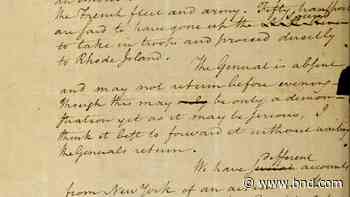 the French fleet and army. Fifty transpor
are said to have gone up the Sound
to take in troops and proceed directly
to Rhode Island.
The General is absent
and may not return before evening.
Though this may only be only a demon-
stration yet as it may be serious, I
think it best to forward it without waiting
the Generals return.
We have different accounts
from New York of an ac
© www.bnd.com